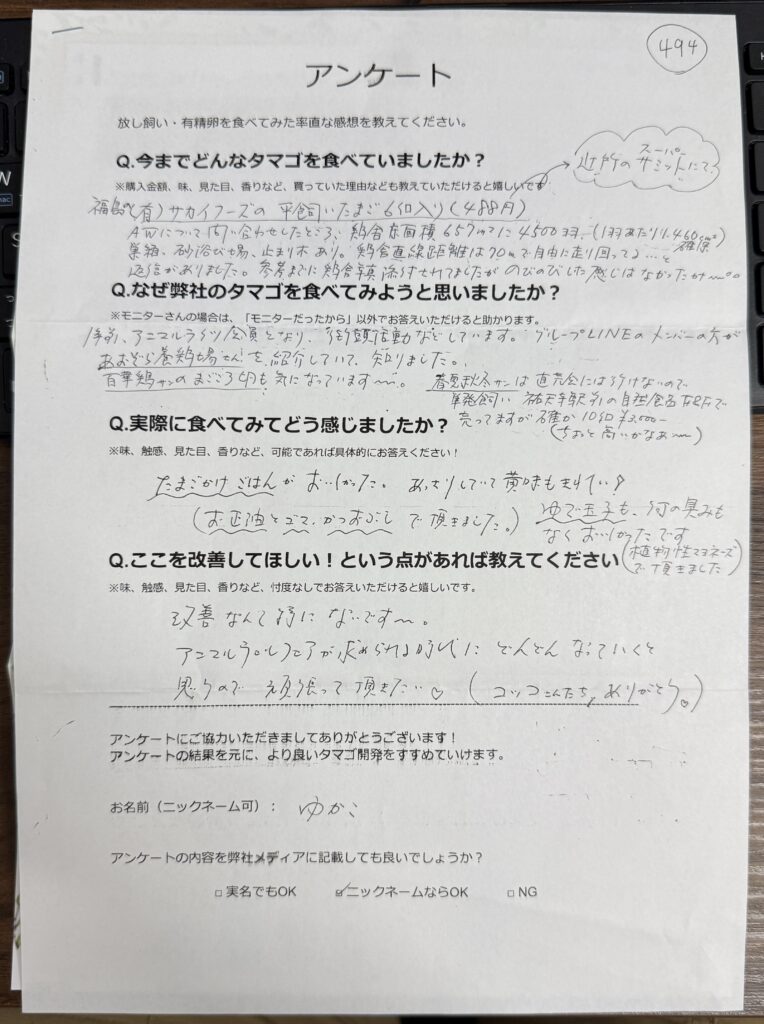 494
アンケート
放し飼い・有精卵を食べてみた率直な感想を教えてください。
Q.今までどんなタマゴを食べていましたか？
※購入金額、味、見た目、香りなど、買っていた理由なども教えていただけると嬉しいです
近所の スーパー サミットにて
福島の(有)サカイフーズの 平飼いたまご6個入り(488円)
AWについて問い合わせしたところ、鶏舎床面積657m²に4500羽、(1羽あたり1.460cm²確保)
巣箱、砂浴び場、止まり木あり。鶏舎直線距離は90mで自由に走り回ってる…と
返信がありました。参考までに鶏舎写真添付されてましたが のびのびした感じはなかったか〜。。
Q.なぜ弊社のタマゴを食べてみようと思いましたか？
※モニターさんの場合は、「モニターだったから」以外でお答えいただけると助かります。
1年前、アニマルライツ会員となり、街頭活動などしています。グループLINEのメンバーの方が
あおぞら養鶏場さんを紹介していて、知りました。
百華鶏サンのまごころ卵も気になっています〜。 春夏秋冬サンは直売会には行けないので
祐天寺駅前の自然食品なRFで
売ってますが確か10個¥2,000-
(ちょっと高いかなあ〜)
Q.実際に食べてみてどう感じましたか？
※味、触感、見た目、香りなど、可能であれば具体的にお答えください！
たまごかけごはんがおいしかった。あっさりしていて黄味もきれい？
(お正油とゴマ、かつおぶしで頂きました。) ゆで玉子も、何の臭みも
なくおいしかったです
(植物性マヨネーズで頂きました)
Q.ここを改善してほしい！という点があれば教えてください
※味、触感、見た目、香りなど、忖度なしでお答えいただけると嬉しいです。
改善なんて特にないです〜。
アニマルウェルフェアが求められる時代にどんどんなっていくと
思うので頑張って頂きたい♡ (コッコさんたち、ありがとう♡)
アンケートにご協力いただきましてありがとうございます！
アンケートの結果を元に、より良いタマゴ開発をすすめていけます。
お名前（ニックネーム可）： ゆかこ
アンケートの内容を弊社メディアに記載しても良いでしょうか？
□ 実名でもOK ☑ニックネームならOK □ NG